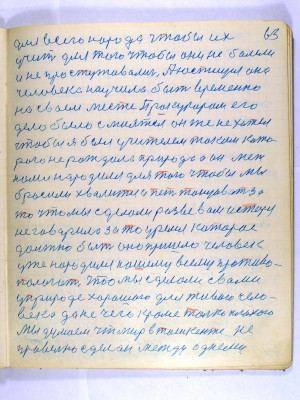 63
для всего народа чтобы их
учить для того чтобы они не болели
и не простуживались, А юстиция она
человека научила быть временно
на своем месте Прокурором его
дело было смеятся он же не хотел
чтобы я был учителем таким кото
рого не рождала природа а он мет
нами народили для того чтобы мы
бросили хвалится и пет танцоват за
то что мы сделали разве вам
не говорила за то время которае
должно быть оно пришло человек
уже народился нашему всему противо-
положен, что мы сделали с вами
в природе хорошого для живого чело-
века да не чего кроме только плохого
мы думаем что мир в ташкенте не
правильно сделан между одними